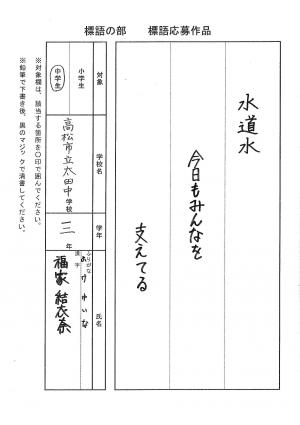 標語の部　標語応募作品
水道水
今日もみんなを
支えてる
対象
小学生
中学生
学校名
高松市立太田中学校
学年
三年
氏名
ふりがな
漢字
福家 結衣奈
※対象欄は、該当する箇所を〇印で囲んでください。
※鉛筆で下書き後、黒のマジックで清書してください。